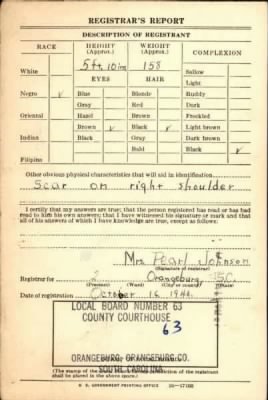 REGISTRAR'S REPORT
DESCRIPTION OF REGISTRANT
RACE HEIGHT (Approx.) WEIGHT (Approx.) COMPLEXION
5 ft. 10 ins 158 Sallow
White EYES HAIR Light
Negro ✓ Blue Blonde Ruddy
Gray Red Dark
Oriental Hazel Brown Freckled
Brown ✓ Black ✓ Light brown
Indian Black Gray Dark brown
Bald Black ✓
Filipino
Other obvious physical characteristics that will aid in identification
Scar on right shoulder
I certify that my answers are true; that the person registered has read or has had
read to him his own answers; that I have witnessed his signature or mark and that
all of his answers of which I have knowledge are true, except as follows:
Mrs. Pearl Johnson
(Signature of registrar)
Registrar for 2 Orangeburg S.C.
(Precinct) (Ward) (City or county) (State)
Date of registration October 16, 1940
LOCAL BOARD NUMBER 63
COUNTY COURTHOUSE
63
ORANGEBURG, ORANGEBURG CO.
SOUTH CAROLINA
(The stamp of the Local Board having jurisdiction of the registrant
shall be placed in the above space.)
U. S. GOVERNMENT PRINTING OFFICE 16—17105